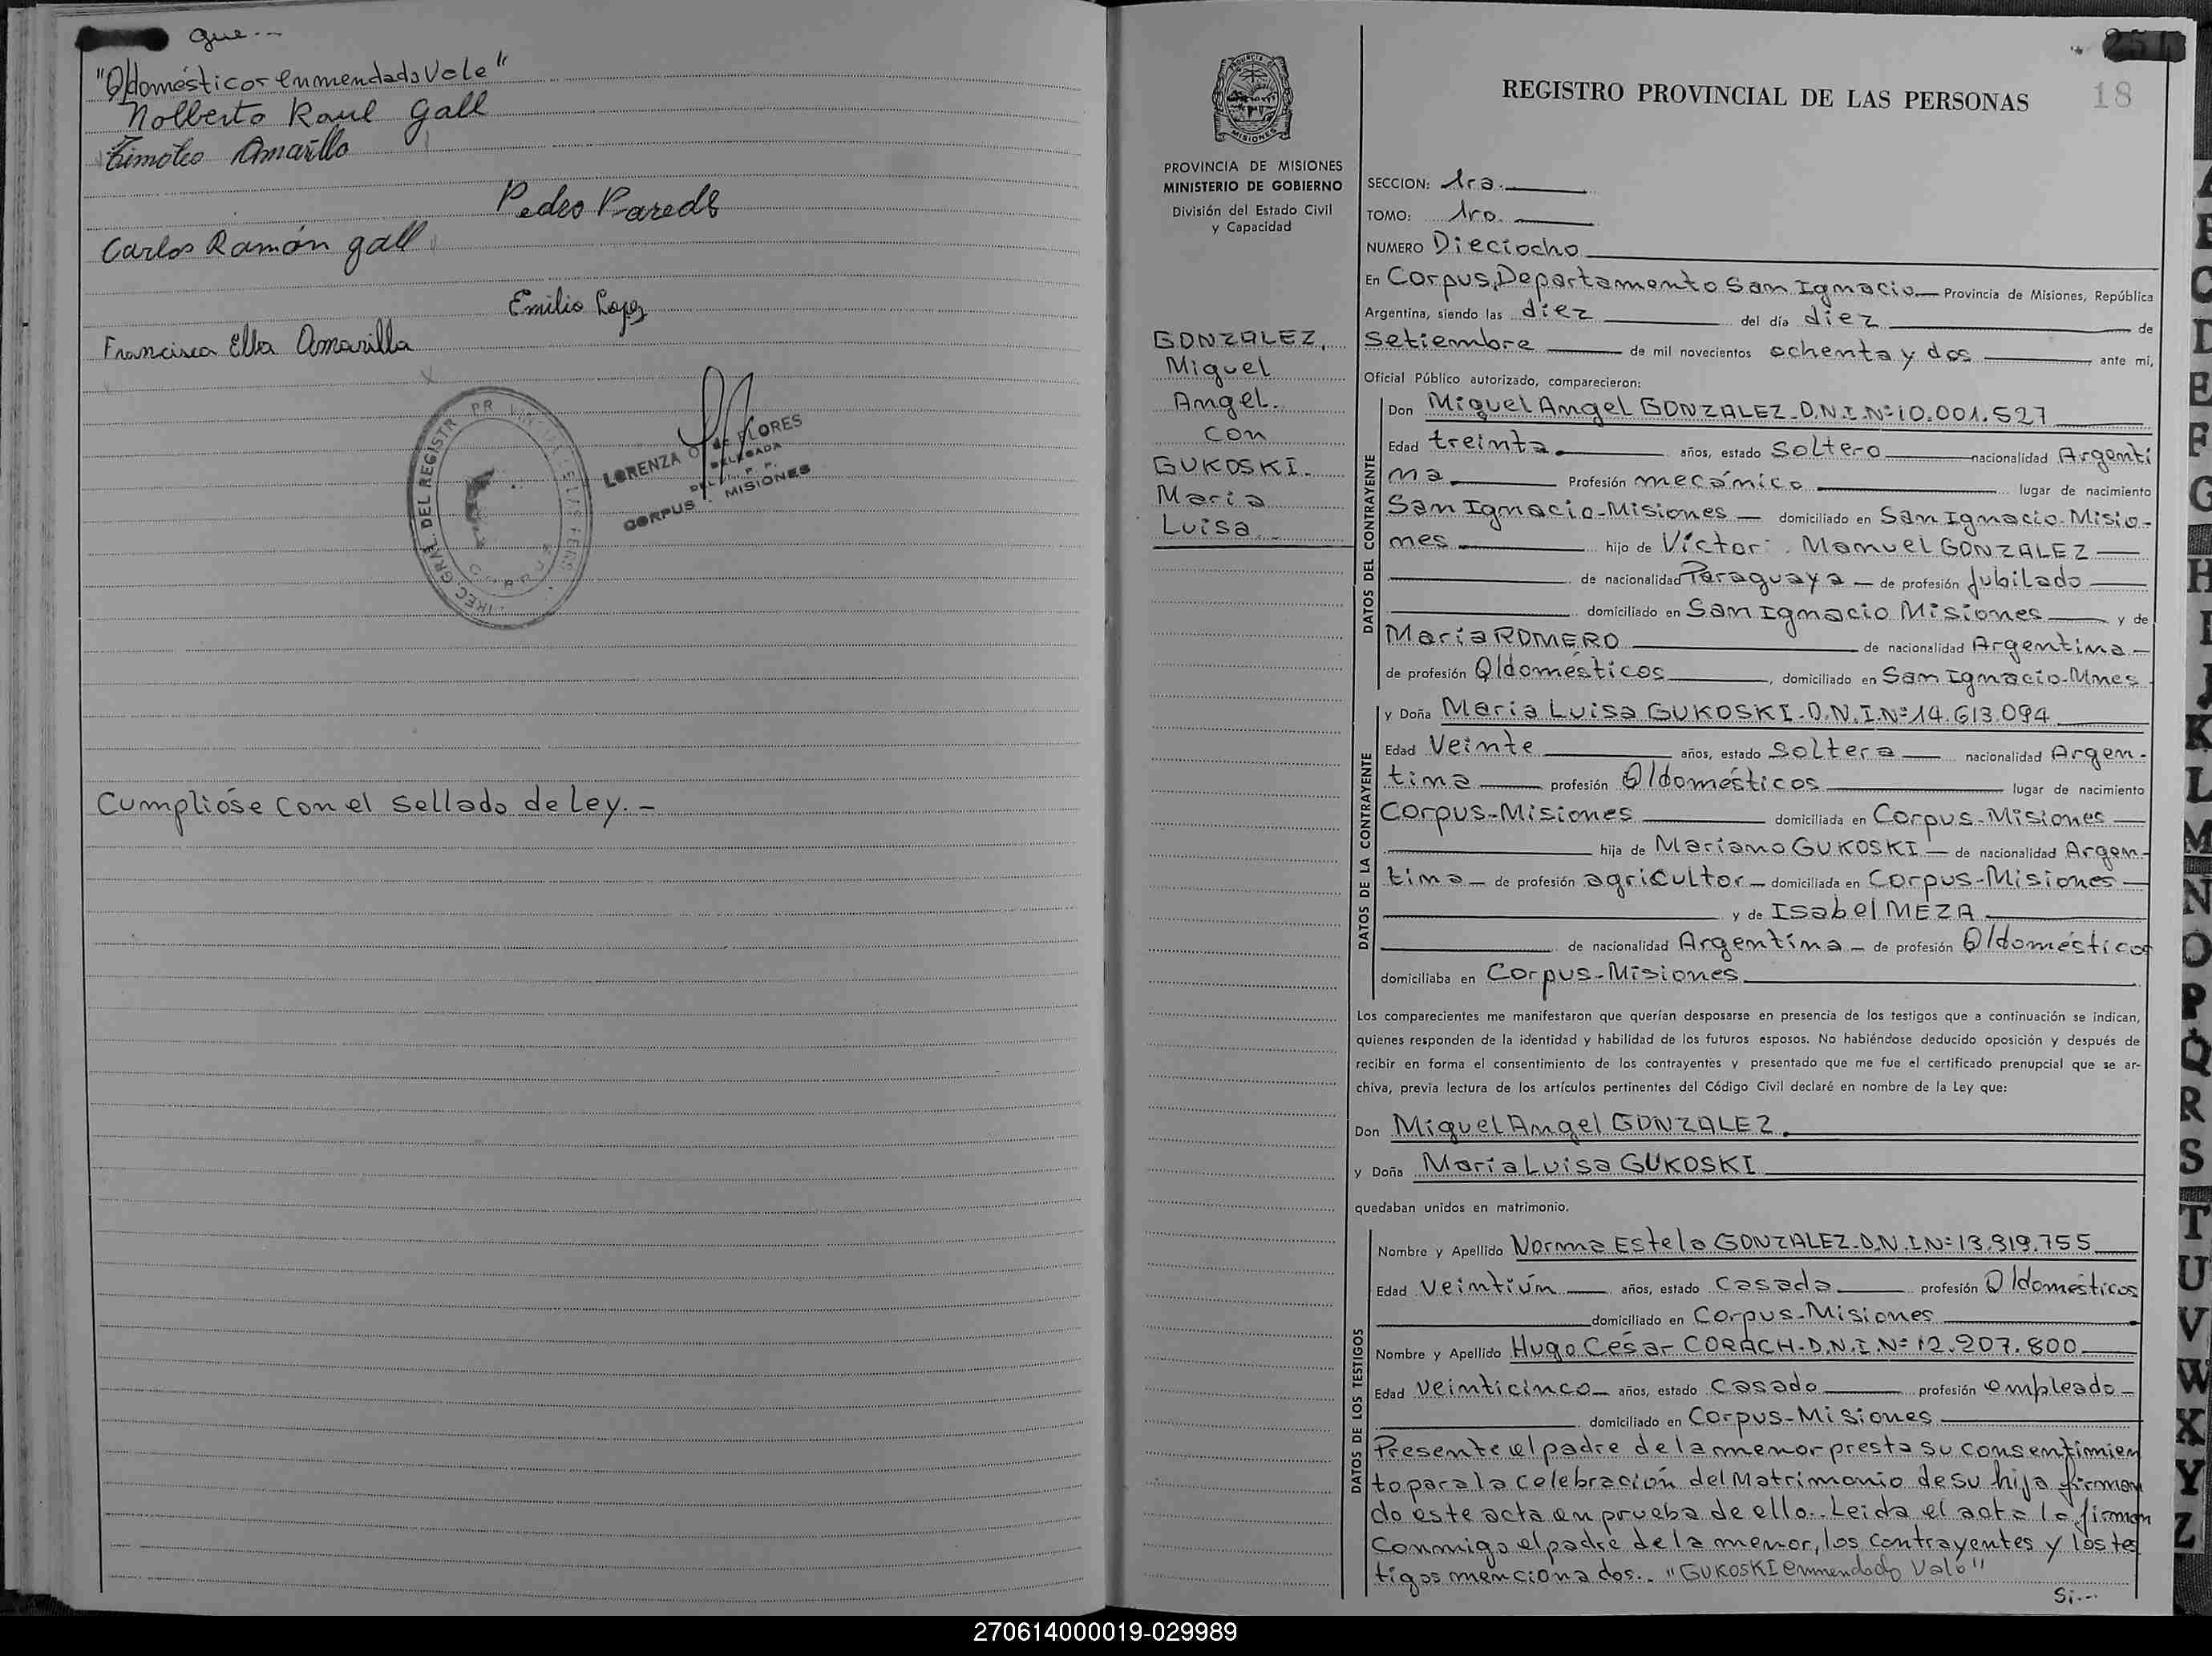 que...
"Q/domésticos enmendado Vale"
Nolberto Raul Gall
Timoteo Amarilla
Pedro Pareds
Carlos Ramón gall
Emilio Lopez
Francisca Elba Amarilla
LORENZA O. de FLORES
DELEGADA
DEL R. P. P.
CORPUS - MISIONES
DEL REGISTR
CORPUS
Cumplióse con el sellado de Ley. -
251
18
PROVINCIA DE
MISIONES
REGISTRO PROVINCIAL DE LAS PERSONAS
PROVINCIA DE MISIONES
MINISTERIO DE GOBIERNO
División del Estado Civil
y Capacidad
GONZALEZ,
Miguel
Angel.
con
GUKOSKI.
Maria
Luisa.
SECCION: 1ra.
TOMO: 1ro.
NUMERO Dieciocho
En Corpus, Departamento San Ignacio Provincia de Misiones, República
Argentina, siendo las diez del día diez de
setiembre de mil novecientos ochenta y dos ante mí,
Oficial Público autorizado, comparecieron:
DATOS DEL CONTRAYENTE
Don Miguel Angel GONZALEZ-D.N.I.Nº10.001.527
Edad treinta años, estado soltero nacionalidad Argenti
na Profesión mecánico lugar de nacimiento
San Ignacio-Misiones domiciliado en San Ignacio-Misio-
nes hijo de Víctor Manuel GONZALEZ
de nacionalidad Paraguaya de profesión Jubilado
domiciliado en San Ignacio Misiones y de
María ROMERO de nacionalidad Argentina
de profesión Q/domésticos, domiciliado en San Ignacio-Mnes
DATOS DE LA CONTRAYENTE
y Doña María Luisa GUKOSKI-D.N.I.Nº14.613.094
Edad Veinte años, estado soltera nacionalidad Argen-
tina profesión Q/domésticos lugar de nacimiento
Corpus-Misiones domiciliada en Corpus-Misiones
hija de Mariano GUKOSKI de nacionalidad Argen-
tina de profesión agricultor domiciliada en Corpus-Misiones
y de Isabel MEZA
de nacionalidad Argentina de profesión Q/domésticos
domiciliaba en Corpus-Misiones
Los comparecientes me manifestaron que querían desposarse en presencia de los testigos que a continuación se indican,
quienes responden de la identidad y habilidad de los futuros esposos. No habiéndose deducido oposición y después de
recibir en forma el consentimiento de los contrayentes y presentado que me fue el certificado prenupcial que se ar-
chiva, previa lectura de los artículos pertinentes del Código Civil declaré en nombre de la Ley que:
Don Miguel Angel GONZALEZ
y Doña María Luisa GUKOSKI
quedaban unidos en matrimonio.
DATOS DE LOS TESTIGOS
Nombre y Apellido Norma Estela GONZALEZ-D.N.I.Nº13.319.755
Edad Veintiún años, estado casada profesión Q/domésticos
domiciliado en Corpus-Misiones
Nombre y Apellido Hugo César CORACH-D.N.I.Nº12.207.800
Edad Veinticinco años, estado casado profesión empleado
domiciliado en Corpus-Misiones
Presente el padre de la menor presta su consentimien
to para la celebración del Matrimonio de su hija firman
do este acta en prueba de ello.. Leida el acta la firman
conmigo el padre de la menor, los contrayentes y los tes
tigos mencionados.. "GUKOSKI enmendado Vale"
Si...
A
B
C
D
E
F
G
H
I
J
K
L
M
N
O
P
Q
R
S
T
U
V
W
X
Y
Z
270614000019-029989